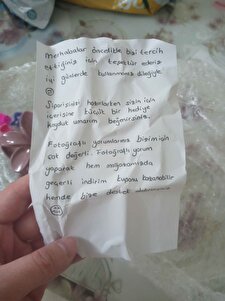 Merhabalar öncelikle bizi tercih
ettiğiniz için teşekkür ederiz
iyi günlerde kullanmanız dileğiyle
Siparişinizi hazırlarken sizin için
içerisine küçük bir hediye
koyduk umarım beğenirsiniz.
Fotoğraflı yorumlarınız bizim için
çok değerli. Fotoğraflı yorum
yaparak hem mağazamızda
geçerli indirim kuponu kazanabilir
hemde bize destek